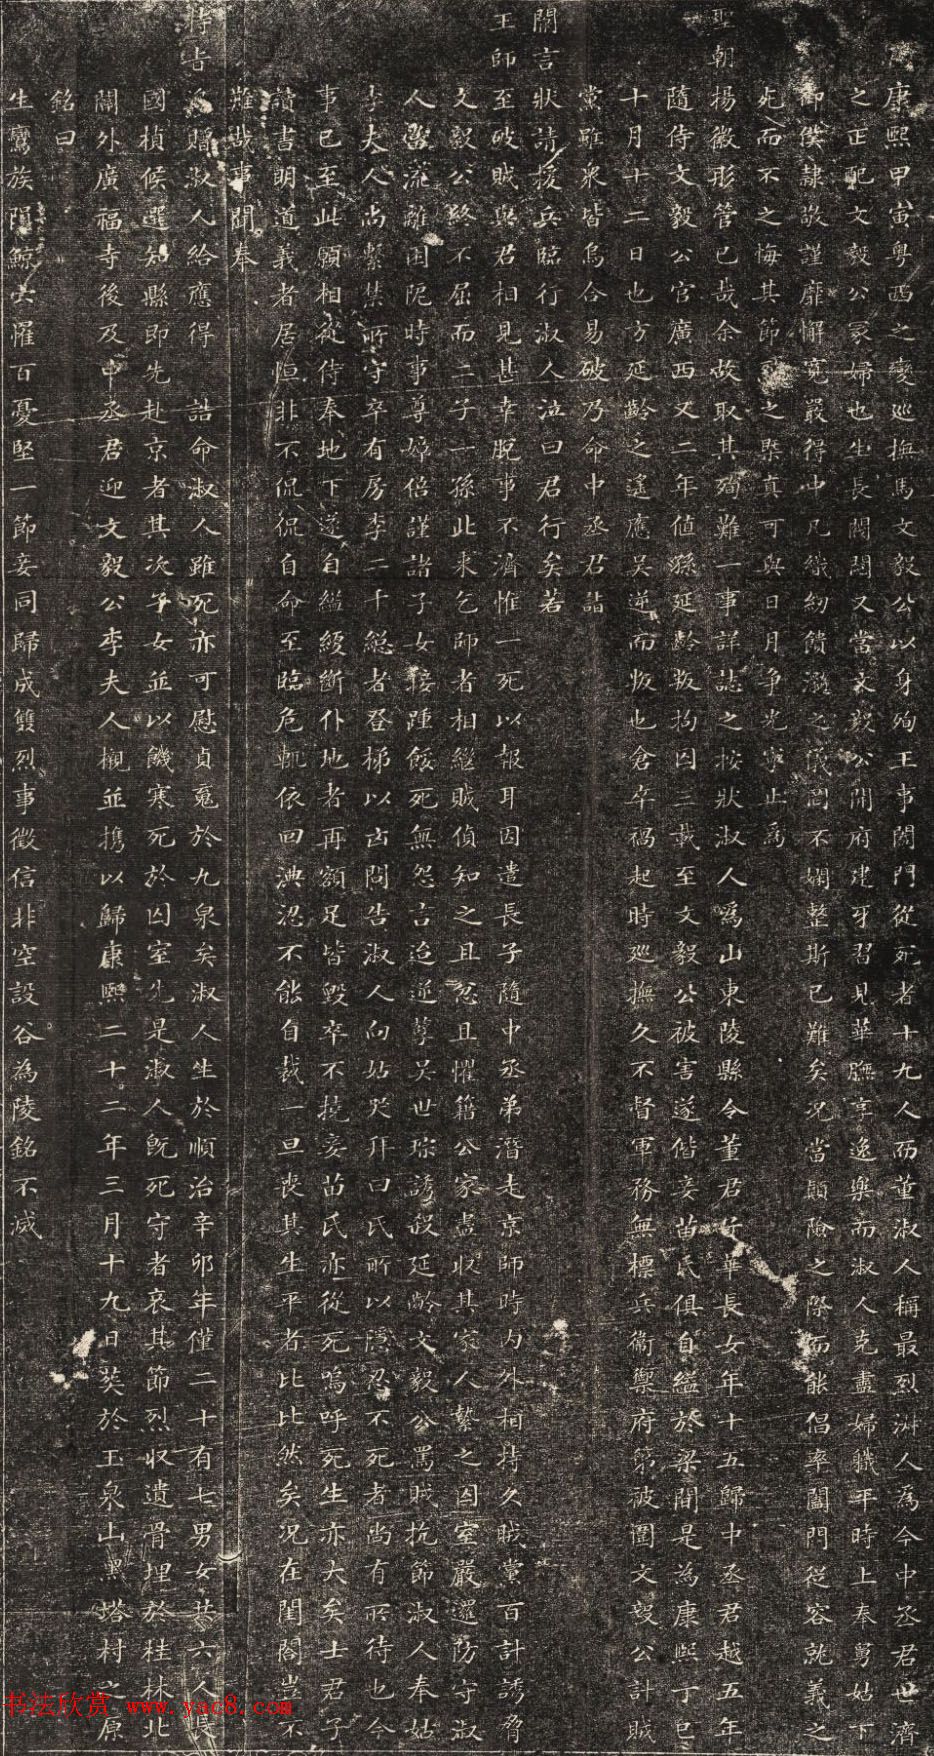 康熙甲寅粵西之變巡撫馬文毅公以身殉王事闔門從死者十九人而董淑人稱最烈淑人為今中丞君世濟
之正配文毅公冢婦也生長閥閱又當文毅公開府建牙習見華膴享逸樂而淑人克盡婦職平時上奉舅姑下
御僕隸敬謹靡懈寬嚴得中凡紉饋之儀罔不嫻整斯已難矣況當顛險之際而能倡率闔門從容就義之
死而不之悔其節之真可與日月爭光寧止為
聖朝揚徽彤管已哉余故取其殉難一事詳誌之按狀淑人為山東陵縣令董君華長女年十五歸中丞君越五年
隨侍文毅公官廣西又二年值孫延齡叛拘囚三載至文毅公被害遂偕妾苗氏俱自縊於梁間是為康熙丁巳
十月十二日也方延齡之遙應吳逆而叛也倉卒禍起時巡撫久不督軍務無標兵衛禦府第被圍文毅公計賊
黨雖衆皆烏合易破乃命中丞君詣
闕言狀請援兵臨行淑人泣曰君行矣若
王師至破賊與君相見甚幸脫事不濟惟一死以報耳因遣長子隨中丞弟潛走京師時內外相持久賊黨百計誘脅
文毅公終不屈而二子一孫此來乞師者相繼賊偵知之且忿且懼籍公家盡收其家人縶之囚室嚴邏防守淑
人流離困阨時事尊嫜倍謹諸子女接踵餒死無怨言迨逆孽吳世琮誘殺延齡文毅公罵賊抗節淑人奉姑
李夫人尚繫禁所守卒有房李二千總者登梯以凶問告淑人向姑哭拜曰氏所以隱忍不死者尚有所待也今
事已至此願相從侍奉地下遂自縊綆斷仆地者再額足皆毀卒不撓妾苗氏亦從死嗚呼死生亦大矣士君子
讀書明道義者居恒非不侃侃自命至臨危輒依回淟涊不能自裁一旦喪其生平者比比然矣況在閨閣豈不
難哉事聞奉
特旨贈淑人給應得 誥命淑人雖死亦可慰貞魂於九泉矣淑人生於順治辛卯年僅二十有七男女共六人長
國楨候選知縣即先赴京者其次子女並以饑寒死於囚室先是淑人既死守者哀其節烈收遺骨埋於桂林北
關外廣福寺後及中丞君迎文毅公李夫人櫬並携以歸康熙二十二年三月十九日葵於玉泉山黑塔村之原
銘曰
生鸞族隕鯨穴罹百憂堅一節妾同歸成雙烈事徵信非空設谷為陵銘不滅
书法欣赏 www.yac8.com